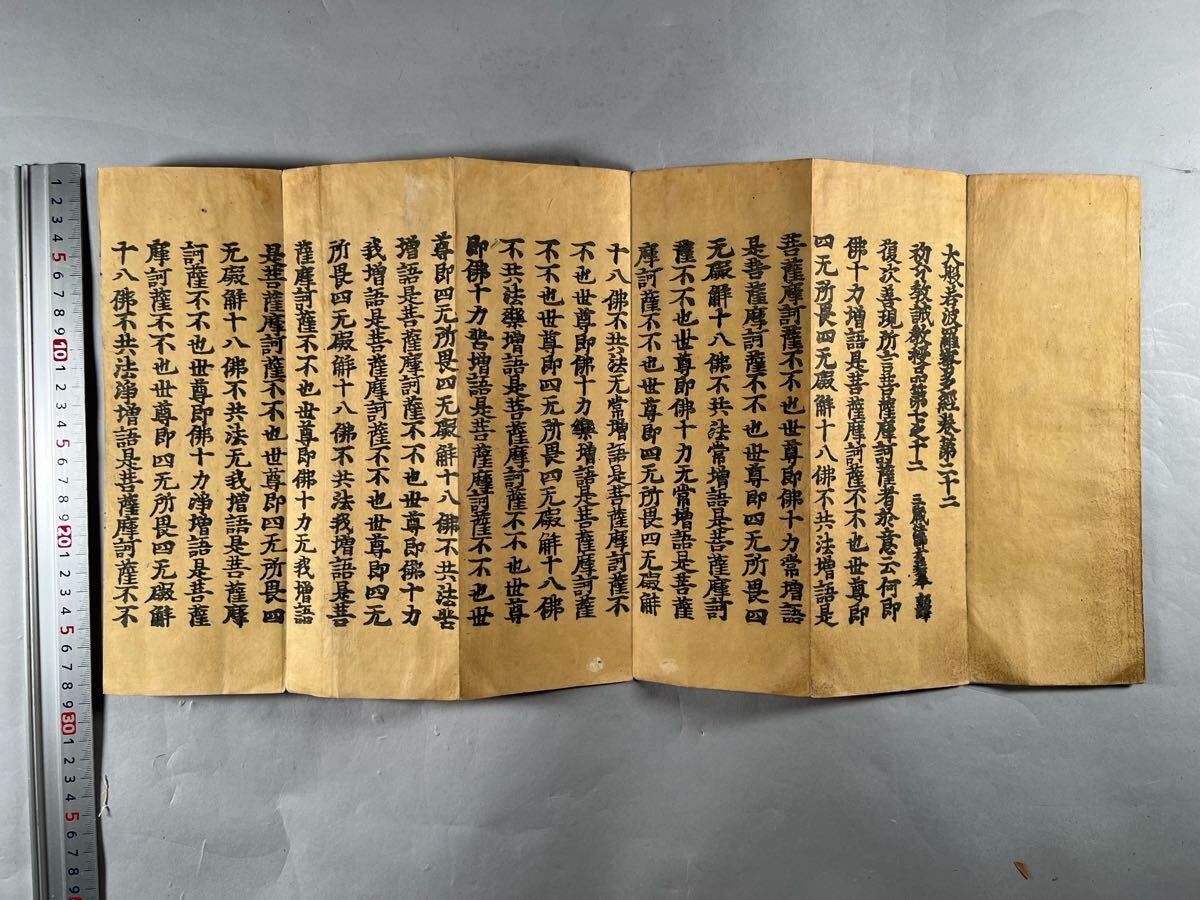 大般若波羅蜜多經卷第二十二
初分教誡教授品第七之十二 三藏法師玄奘奉 詔譯
復次善現所言菩薩摩訶薩者於意云何即
佛十力增語是菩薩摩訶薩不不也世尊即
四无所畏四无礙解十八佛不共法增語是
菩薩摩訶薩不不也世尊即佛十力常增語
是菩薩摩訶薩不不也世尊即四无所畏四
无礙解十八佛不共法常增語是菩薩摩訶
薩不不也世尊即佛十力无常增語是菩薩
摩訶薩不不也世尊即四无所畏四无礙解
十八佛不共法无常增語是菩薩摩訶薩不
不也世尊即佛十力樂增語是菩薩摩訶薩
不不也世尊即四无所畏四无礙解十八佛
不共法樂增語是菩薩摩訶薩不不也世尊
即佛十力苦增語是菩薩摩訶薩不不也世
尊即四无所畏四无礙解十八佛不共法苦
增語是菩薩摩訶薩不不也世尊即佛十力
我增語是菩薩摩訶薩不不也世尊即四无
所畏四无礙解十八佛不共法我增語是菩
薩摩訶薩不不也世尊即佛十力无我增語
是菩薩摩訶薩不不也世尊即四无所畏四
无礙解十八佛不共法无我增語是菩薩摩
訶薩不不也世尊即佛十力淨增語是菩薩
摩訶薩不不也世尊即四无所畏四无礙解
十八佛不共法淨增語是菩薩摩訶薩不不
1 2 3 4 5 6 7 8 9 10 1 2 3 4 5 6 7 8 9 20 1 2 3 4 5 6 7 8 9 30 1 2 3 4 5 6 7 8 9